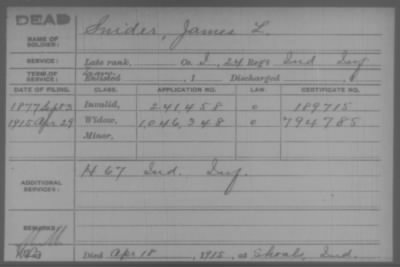 DEAD
NAME OF SOLDIER: Snider, James L.
SERVICE: Late rank, Co. I, 24 Reg't Ind Inf
TERM OF SERVICE: Enlisted , 1 Discharged , 1
DATE OF FILING. CLASS. APPLICATION NO. LAW. CERTIFICATE NO.
1877 Sep 3 Invalid, 241458 0 189715
1915 Apr 29 Widow, 1,046,348 0 794785
Minor,
ADDITIONAL SERVICES: H 67 Ind. Inf.
REMARKS:
Died Apr 18, 1915, at Shoals, Ind.